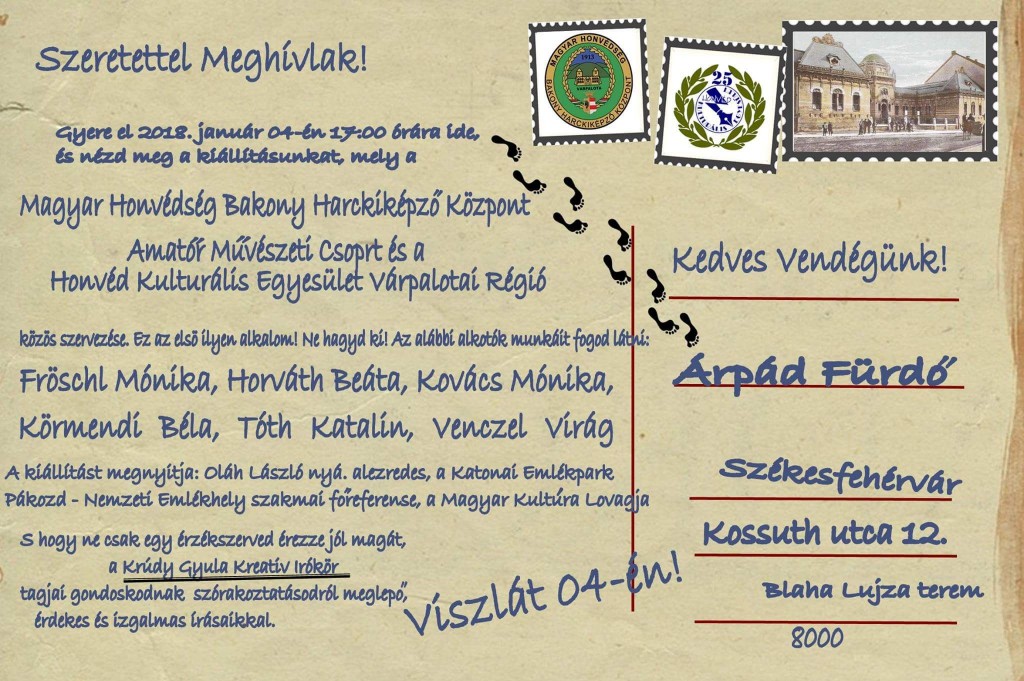 Szeretettel Meghívlak!
Gyere el 2018. január 04-én 17:00 órára ide,
és nézd meg a kiállításunkat, mely a
Magyar Honvédség Bakony Harckiképző Központ
Amatőr Művészeti Csoprt és a
Honvéd Kulturális Egyesület Várpalotai Régió
közös szervezése. Ez az elsö ilyen alkalom! Ne hagyd ki! Az alábbi alkotók munkáit fogod látni:
Fröschl Mónika, Horváth Beáta, Kovács Mónika,
Körmendi Béla, Tóth Katalin, Venczel Virág
A kiállítást megnyitja: Oláh László nyá. alezredes, a Katonai Emlékpark
Pákozd - Nemzeti Emlékhely szakmai főreferense, a Magyar Kultúra Lovagja
S hogy ne csak egy érzékszerved érezze jól magát,
a Krúdy Gyula Kreatív Irókör
tagjai gondoskodnak szórakoztatásodról meglepő,
érdekes és izgalmas írásaikkal.
Viszlát 04-én!
MAGYAR HONVÉDSÉG
1913
VÁRPALOTA
BAKONY HARCKIKÉPZŐ KÖZPONT
25
Kedves Vendégünk!
Árpád Fürdő
Székesfehérvár
Kossuth utca 12.
Blaha Lujza terem
8000